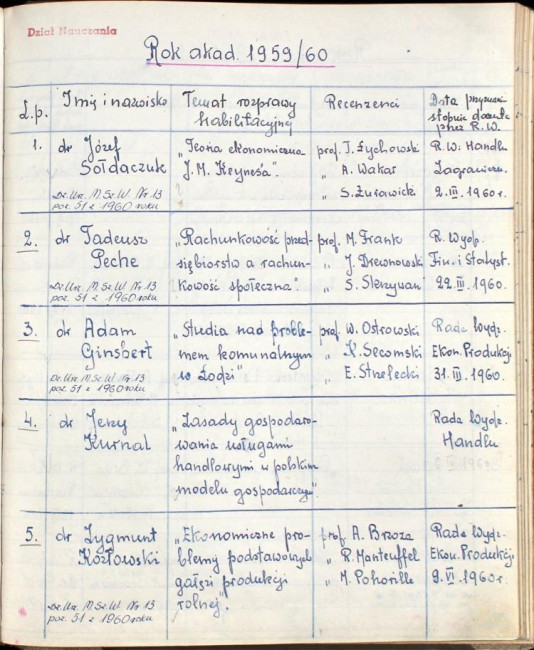 Dział Nauczania
Rok akad. 1959/60
L.p.
Imię i nazwisko
Temat rozprawy
habilitacyjnej
Recenzenci
Data przyznani
stopnia
przez R.W.
1.
dr Józef
Sołdaczuk
Dz.Urz. M.Sz.W. Nr. 13
poz. 51 z 1960 roku
"Teoria ekonomiczna
J. M. Keynesa".
prof. J. Żychowski
" A. Wakar
" S. Żurawicki
R.W. Handlu
Zagraniczn.
2.III.1960r.
2.
dr Tadeusz
Peche
Dz.Urz. M.Sz.W. Nr. 13
poz. 51 z 1960 roku
"Rachunkowość przed-
siębiorstw a rachun-
kowość społeczna".
prof. M. Frank
" J. Drewnowski
" S. Skrzywan
R. Wydz.
Fin. i Statyst.
22.III.1960.
3.
dr Adam
Ginsbert
Dz.Urz. M.Sz.W. Nr. 13
poz. 51 z 1960 roku
"Studia nad proble-
mem komunalnym
w Łodzi"
prof. W. Ostrowski
" K. Secomski
" E. Strzelecki
Rada Wydz.
Ekon. Produkcji
31.III.1960.
4.
dr Jerzy
Kurnal
"Zasady gospodaro-
wania usługami
handlowymi w polskim
modelu gospodarczym"
Rada Wydz.
Handlu
5.
dr Zygmunt
Kozłowski
Dz.Urz. M.Sz.W. Nr. 13
poz. 51 z 1960 roku
"Ekonomiczne pro-
blemy podstawowych
gałęzi produkcji
rolnej".
prof. A. Brzoza
" R. Manteuffel
" M. Pohorille
Rada Wydz.
Ekon. Produkcji
9.VI.1960r.